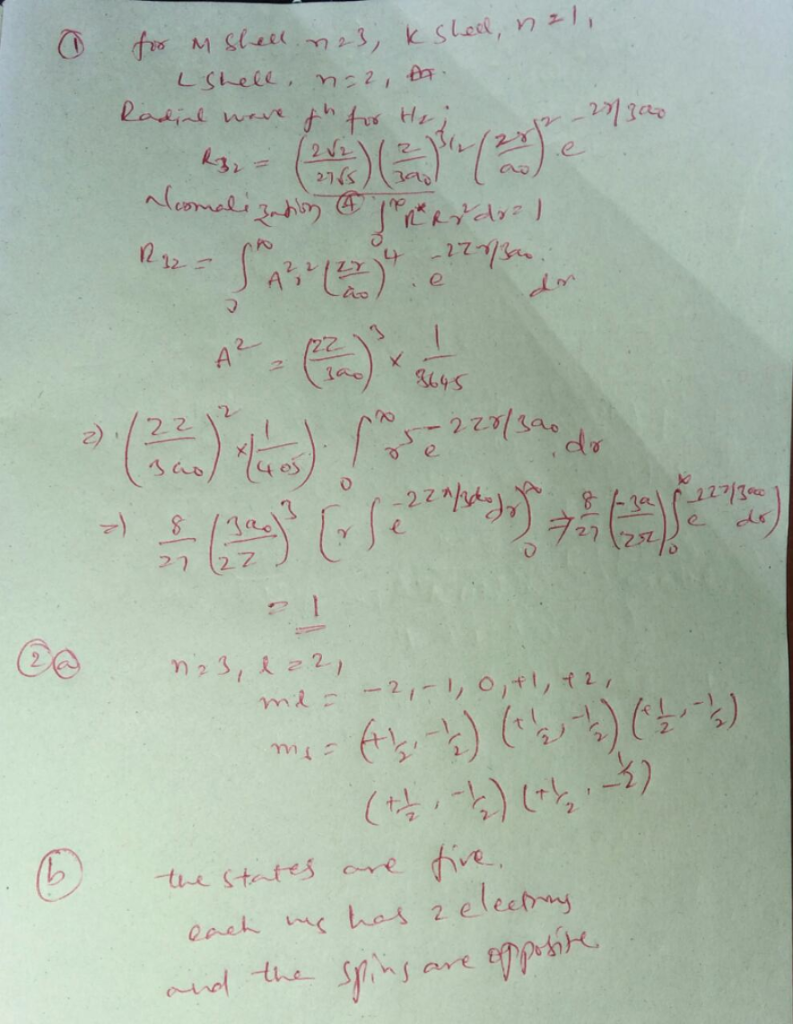 ① for M shell n=3, K shell, n=1,
L shell, n=2,
Radial wave fn for H2;
R32 = (2√2/27√5) (z/3a0)^3/2 (2r/a0)^2 e^-2r/3a0
Normalization ④ ∫0^∞ R* R r^2 dr = 1
R32 = ∫0^∞ A^2 r^2 (2r/a0)^4 . e^-2Zr/3a0 . dr
A^2 = (2Z/3a0)^3 × 1/8645
=) . (2Z/3a0)^2 × (1/405) . ∫0^∞ r^5 e^-2Zr/3a0 . dr
=) 8/27 (3a0/2Z)^3 [r ∫ e^-2Zr/3a0 dr)0^∞ => 8/27 (-3a/2Z) ∫0^∞ e^-2Zr/3a0 dr)
= 1
② ⓐ n=3, l=2,
ml = -2, -1, 0, +1, +2,
ms = (+1/2, -1/2) (+1/2, -1/2) (+1/2, -1/2)
(+1/2, -1/2) (+1/2, -1/2)
ⓑ the states are five.
each ms has 2 electrons
and the spins are opposite